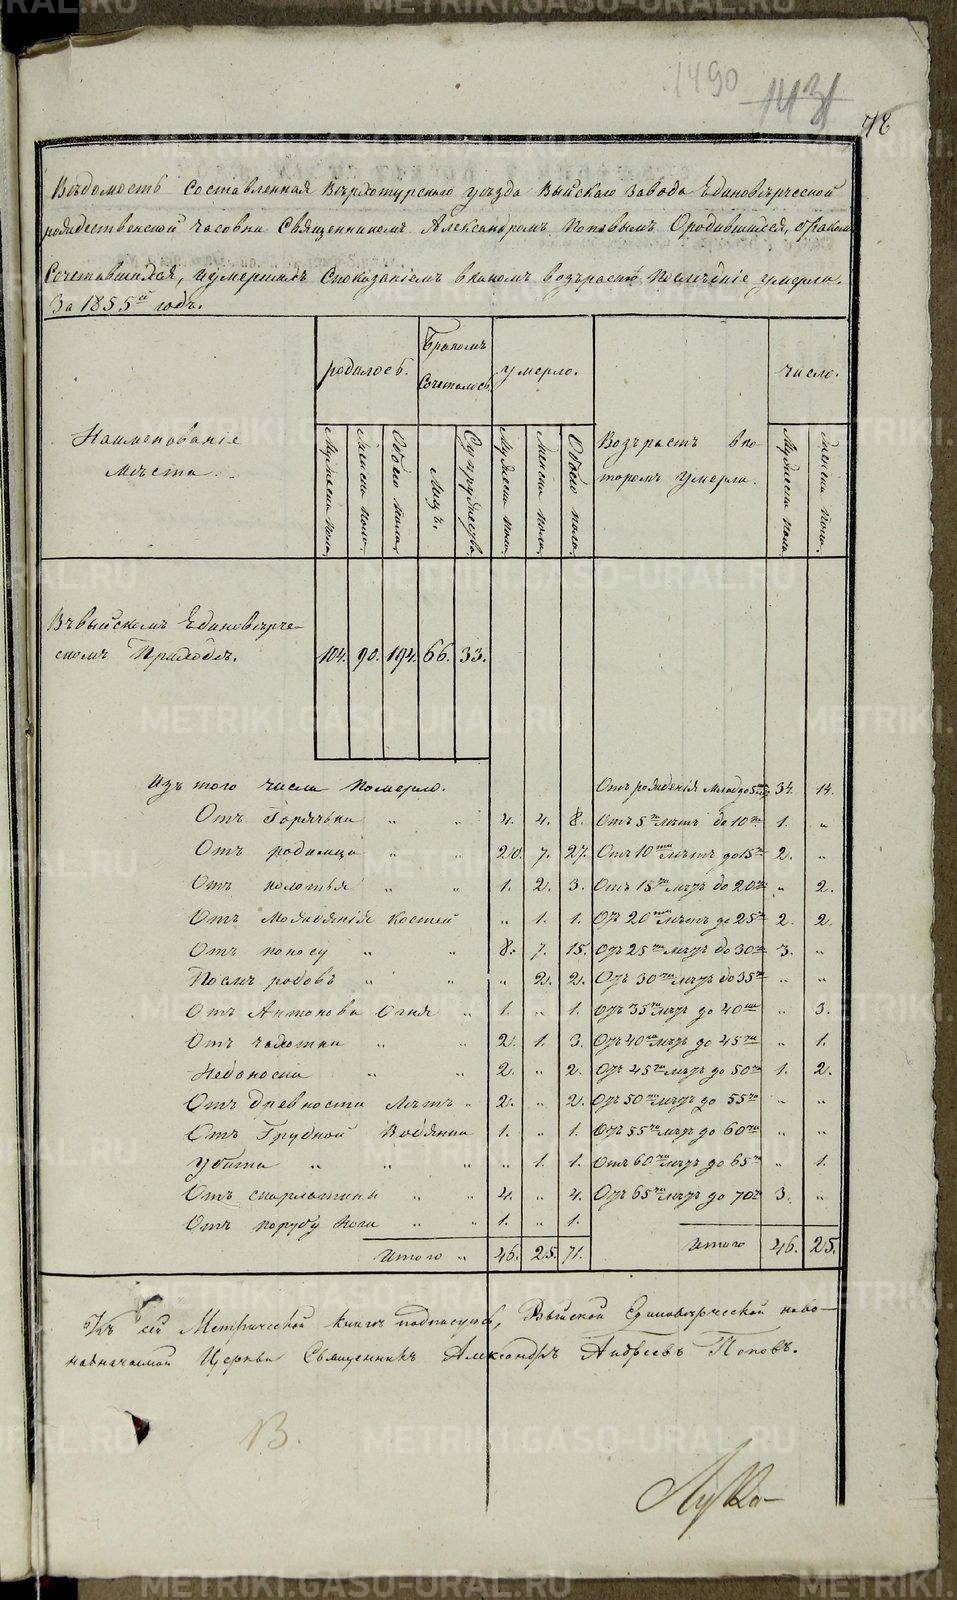 1490 1431
78
Вѣдомость Составленная Верхотурскаго уѣзда Выйскаго Завода Единовѣрческой
рождественской часовни Священникомъ Александромъ Поповымъ Ородившихся, бракомъ
Сочетавшихся, иумершихъ Споказанiемъ вкакомъ возърастѣ Послѣднiе умерли.
За 1855й годъ.
Наименованiе
Мѣста.
родилось.
Мужеска пола.
Женска пола.
Обоего пола.
Бракомъ
Сочеталось.
Лицъ.
Супружествъ.
умерло.
Мужеска пола.
Женска пола.
Обоего пола.
Возърастъ вко
торомъ умерли.
число.
Мужеска пола.
Женска пола.
Въвыйскомъ Единовѣрче-
скомъ Приходѣ. 104. 90. 194. 66. 33.
Изъ того числа Померло. Отъ рожденiя Млад до 5 34. 14.
Отъ Горячьки „ „ 4. 4. 8. Отъ 5ти лѣтъ до 10ти 1. „
Отъ родимца „ „ 20. 7. 27. Отъ 10ти лѣтъ до 15ти 2. „
Отъ колотья „ „ 1. 2. 3. Отъ 15ти лѣтъ до 20ти „ 2.
Отъ Можжѣнiя костей „ 1. 1. Отъ 20ти лѣтъ до 25ти 2. 2.
Отъ поносу „ „ 8. 7. 15. Отъ 25ти лѣтъ до 30ти 3. „
Послѣ родовъ „ „ „ 2. 2. Отъ 30ти лѣтъ до 35ти „ „
Отъ Антонова Огня „ 1. „ 1. Отъ 35ти лѣтъ до 40ка „ 3.
Отъ чахотки „ „ 2. 1. 3. Отъ 40ка лѣтъ до 45ти „ 1.
Недоноски „ „ 2. „ 2. Отъ 45ти лѣтъ до 50ти 1. 2.
Отъ древности Лѣтъ „ 2. „ 2. Отъ 50ти лѣтъ до 55ти „ „
Отъ Грудной Водянки 1. „ 1. Отъ 55ти лѣтъ до 60ти „ „
Убита „ „ „ „ 1. 1. Отъ 60ти лѣтъ до 65ти „ 1.
Отъ скарлатины „ „ 4. „ 4. Отъ 65ти лѣтъ до 70ти 3. „
Отъ порубу Ноги „ „ 1. „ 1.
Итого „ 46. 25. 71. Итого 46. 25.
Къ сей Метрической книгѣ подписуюсь, Выйской Единовѣрческой ново-
назначаемой Церкви Священникъ Александръ Андреевъ Поповъ.
В.
METRIKI.GASO-URAL.RU